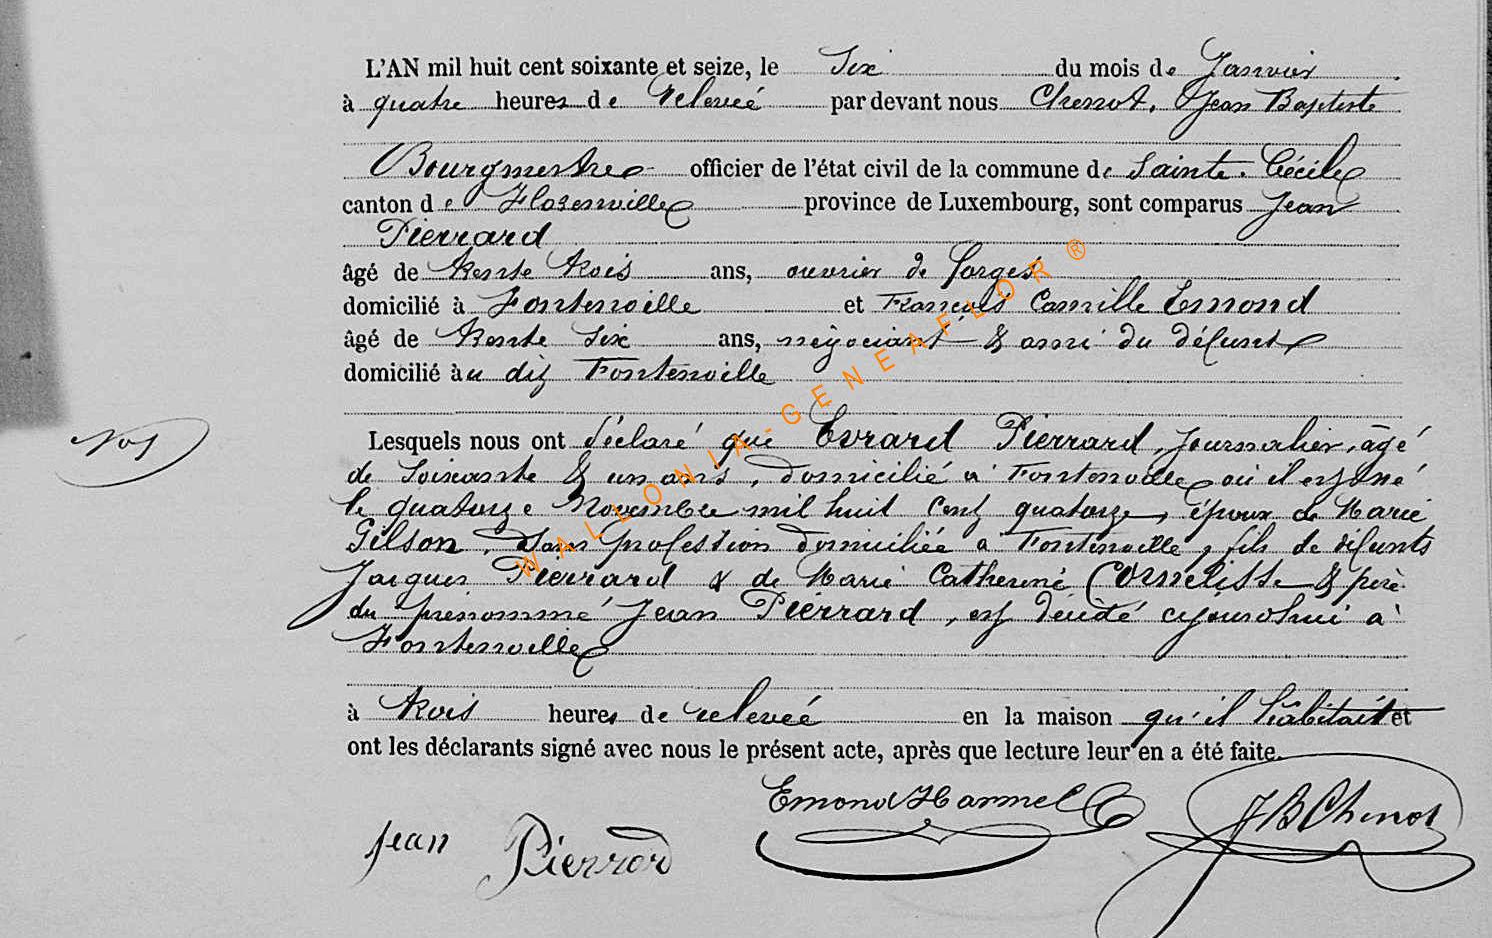 L'AN mil huit cent soixante et seize, le Six du mois de Janvier
à quatre heures de relevée par devant nous Chenot, Jean Baptiste
Bourgmestre officier de l'état civil de la commune de Sainte-Cécile
canton de Florenville province de Luxembourg, sont comparus Jean
Pierrard
âgé de trente trois ans, ouvrier de forges
domicilié à Fontenoille et François Camille Emond
âgé de trente six ans, négociant & ami du défunt
domicilié au dit Fontenoille
Lesquels nous ont déclaré que Evrard Pierrard, journalier, âgé
de soixante & un ans, domicilié à Fontenoille où il est né
le quatorze Novembre mil huit cent quatorze, époux de Marie
Gilson, sans profession domiciliée à Fontenoille, fils de défunts
Jacques Pierrard & de Marie Catherine Cornelisse & père
du prénommé Jean Pierrard, est décédé cejourd'hui à
Fontenoille
à trois heures de relevée en la maison qu'il habitait et
ont les déclarants signé avec nous le présent acte, après que lecture leur en a été faite.
Emond Hannel JB Chenot
Jean Pierrard
WALLONIA-GENEAFLOR ®